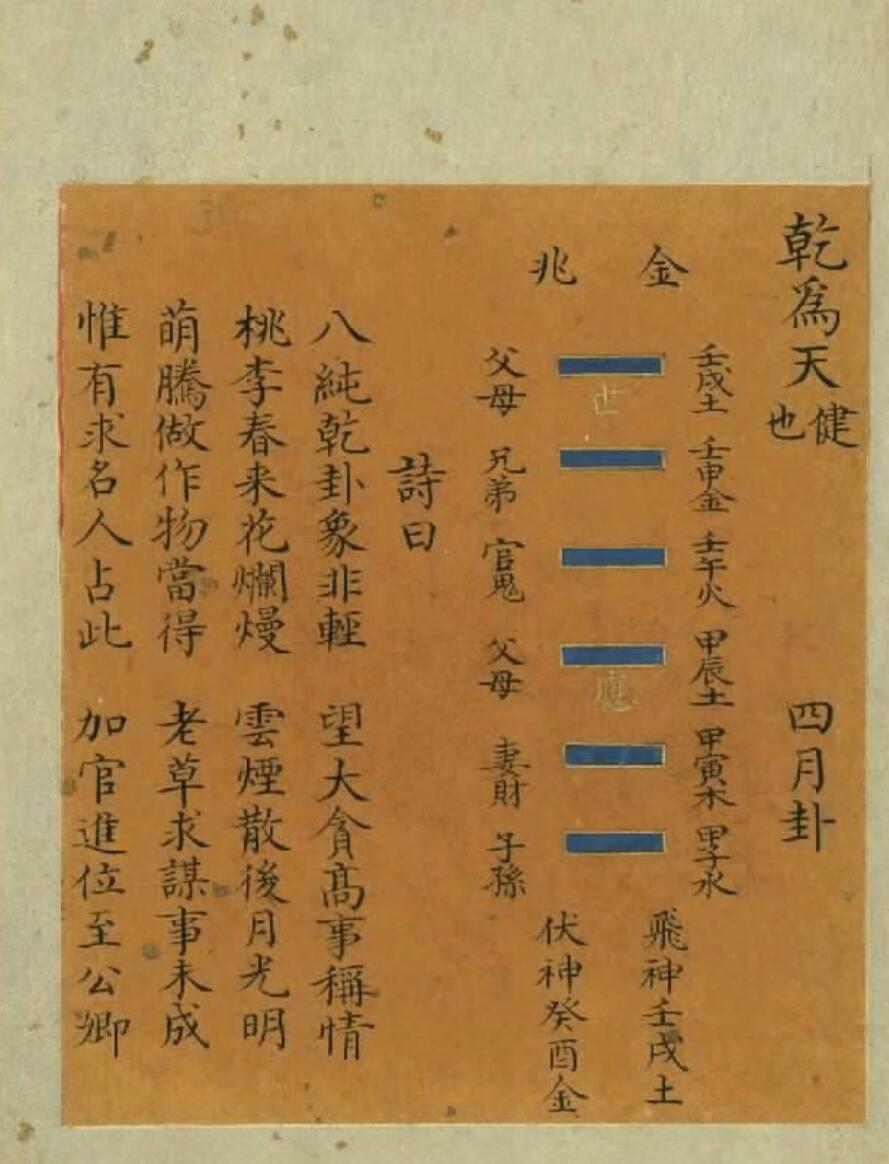 乾為天健也
四月卦
金兆
壬戌土 壬申金 壬午火 甲辰土 甲寅木 甲子水
世 應
父母 兄弟 官鬼 父母 妻財 子孫
飛神壬戌土
伏神癸酉金
詩曰
八純乾卦象非輕 望大貪高事稱情
桃李春来花爛熳 雲煙散後月光明
萌騰做作物當得 老草求謀事未成
惟有求名人占此 加官進位至公卿